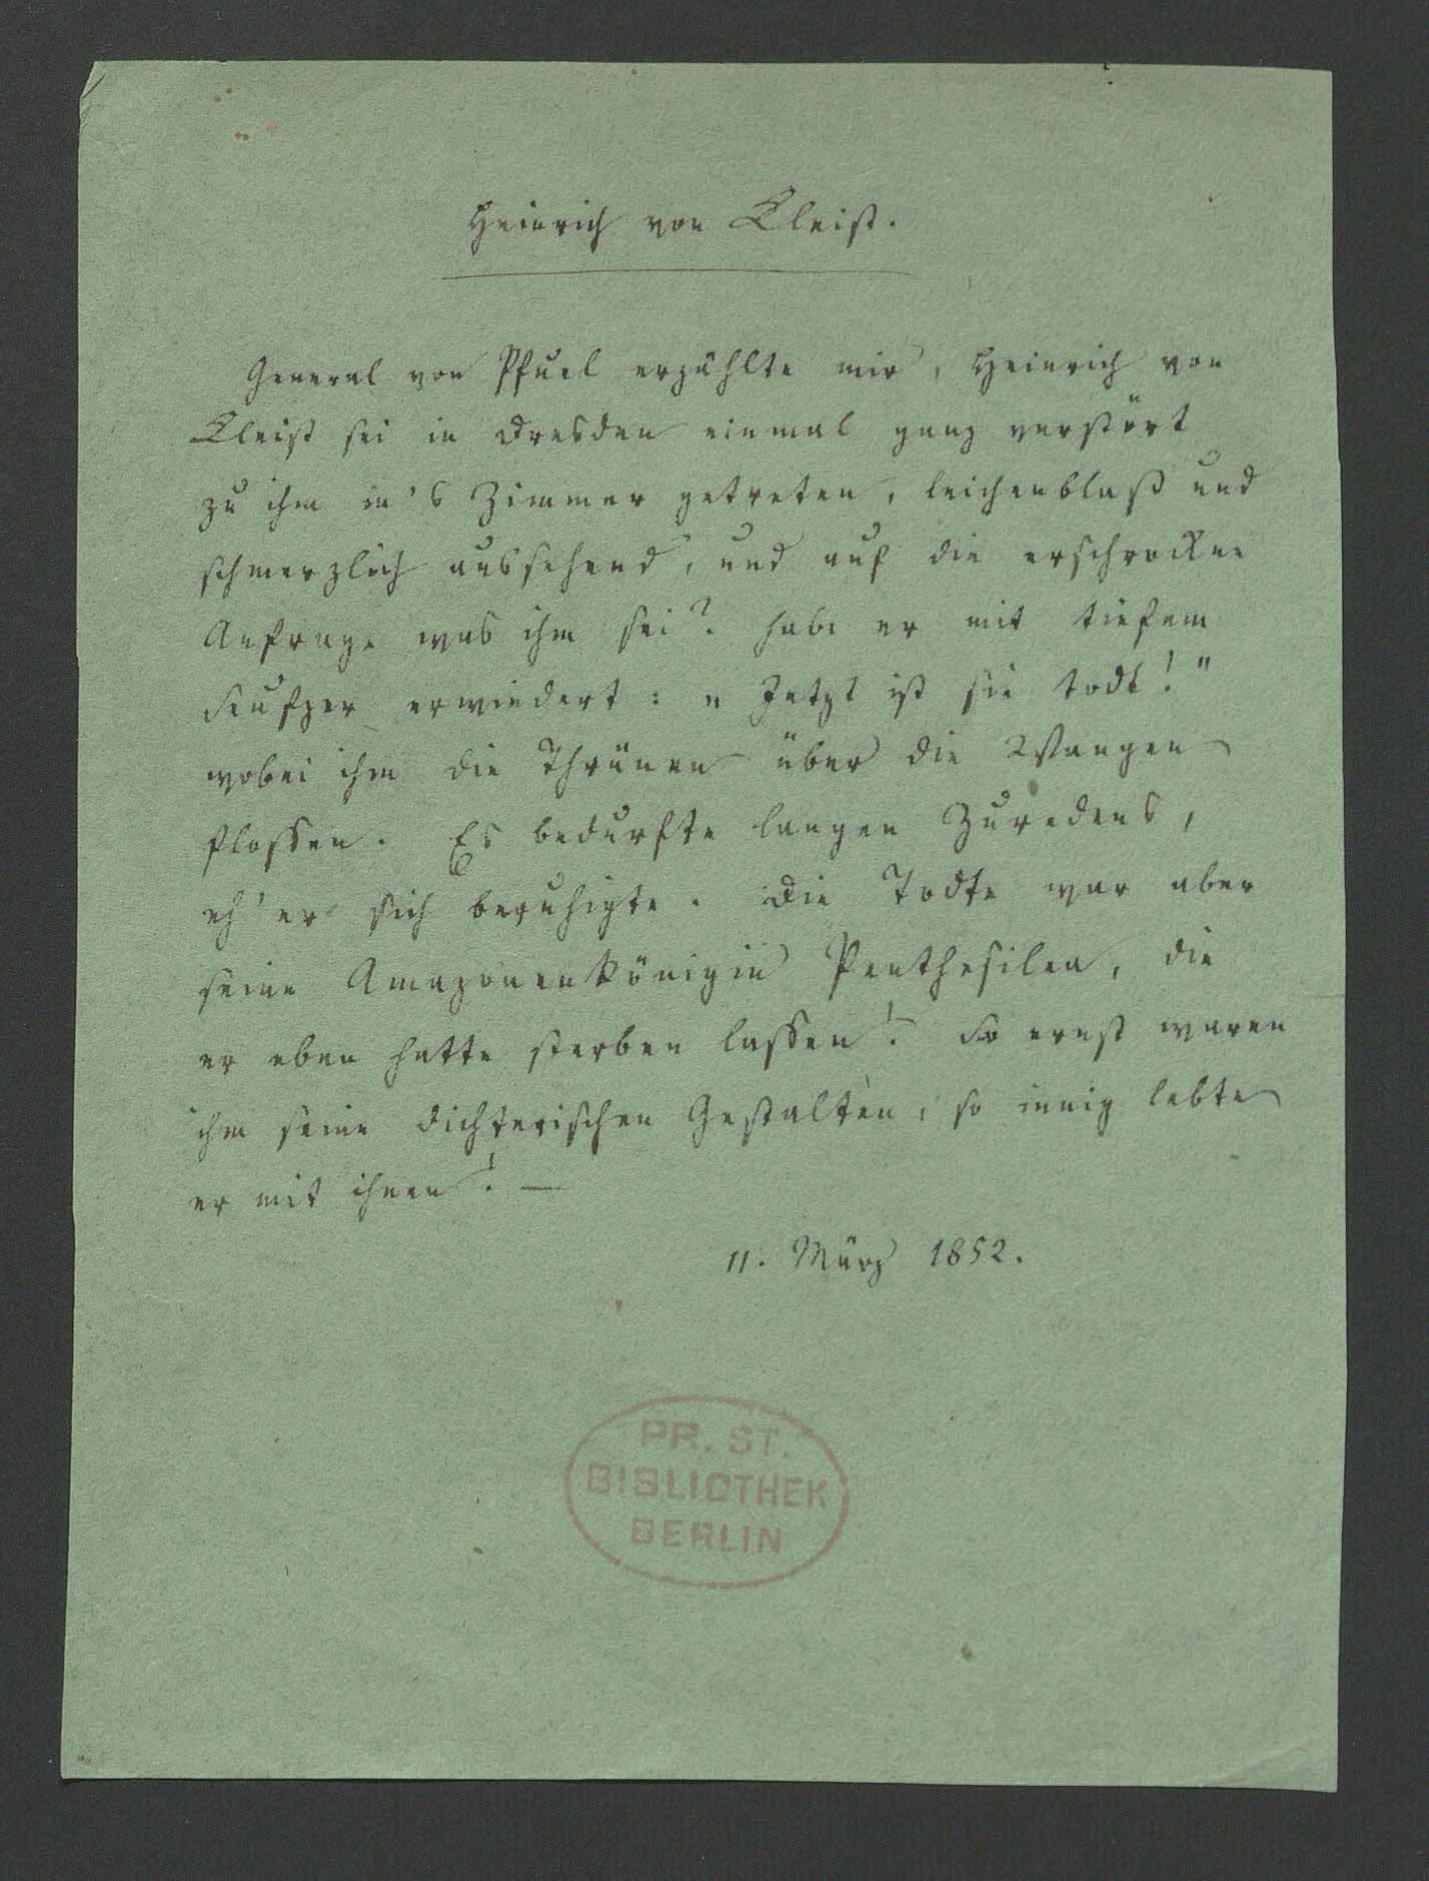 Heinrich von Kleist.
General von Pfuel erzählte mir, Heinrich von
Kleist sei in Dresden einmal ganz verstört
zu ihm in's Zimmer getreten, leichenblaß und
schmerzlich aussehend, und auf die erschrockne
Anfrage was ihm sei? habe er mit tiefem
Seufzer erwiedert: „Jetzt ist sie todt!"
wobei ihm die Thränen über die Wangen
flossen. Es bedurfte langen Zuredens,
eh' er sich beruhigte. Die Todte war aber
seine Amazonenkönigin Penthesilea, die
er eben hatte sterben lassen! So ernst waren
ihm seine dichterischen Gestalten, so innig lebte
er mit ihnen! —
11. März 1852.
PR. ST.
BIBLIOTHEK
BERLIN